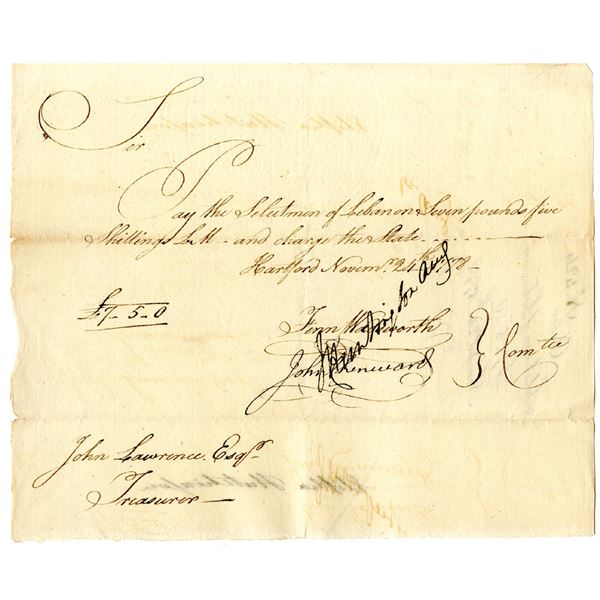 Sir
Pay the Selectmen of Lebanon Seven pounds five
Shillings L.M. and charge the State
Hartford Novemr. 24th 1778
£7-5-0
Fenn Wadsworth
John Chenevard
} Comtee
Huntington
John Lawrence Esqr.
Treasurer